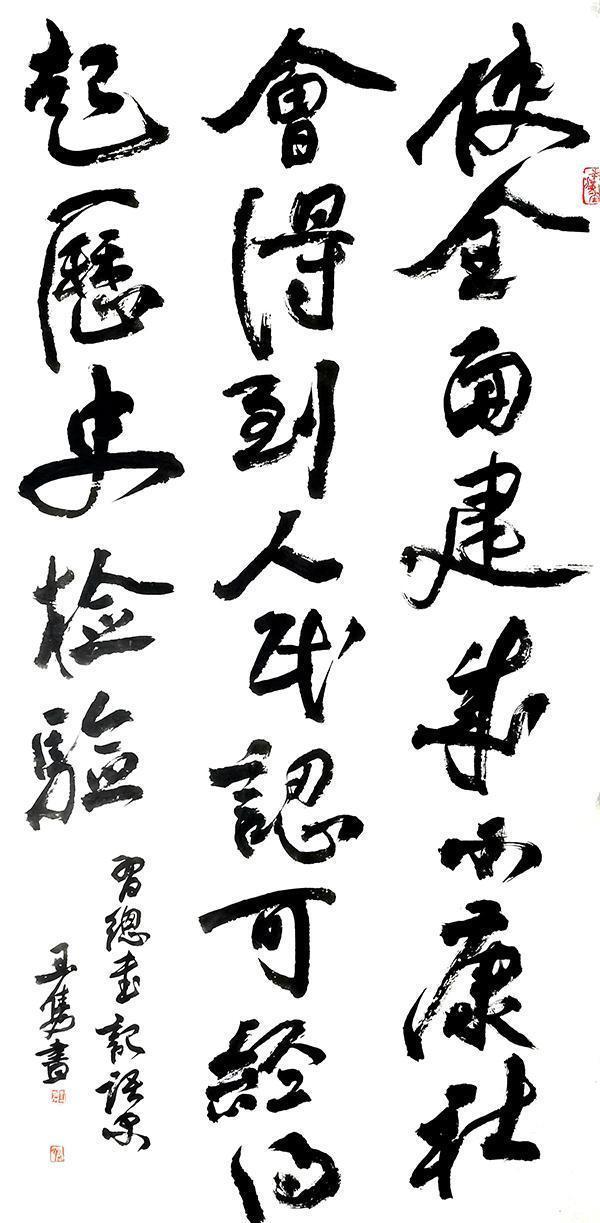 使全面建成小康社
會得到人民認可經得
起歷史檢驗
習總書記語錄